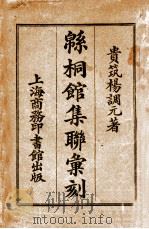 貴筑楊調元著
緜桐館集聯彙刻
上海商務印書館出版